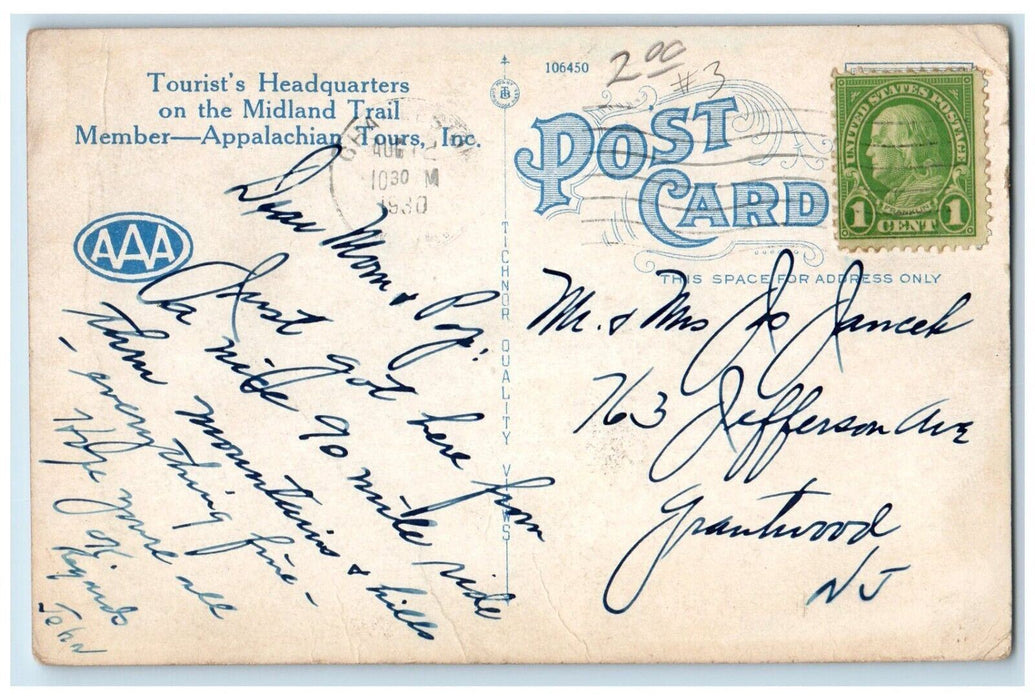 Tourist's Headquarters
on the Midland Trail
Member—Appalachian Tours, Inc.
AAA
AUG 12
10 30 M
1930
106450
2 00
#3
POST
CARD
UNITED STATES POSTAGE
FRANKLIN
1 CENT 1
THIS SPACE FOR ADDRESS ONLY
TICHNOR QUALITY VIEWS
Dear Mom & Pop:
Just got here from
Va nice 90 mile ride
thru mountains & hills
- everything fine -
Hope youre all
OK
Rgards
John
Mr. & Mrs Jo Jancek
763 Jefferson Ave
Grantwood
NJ